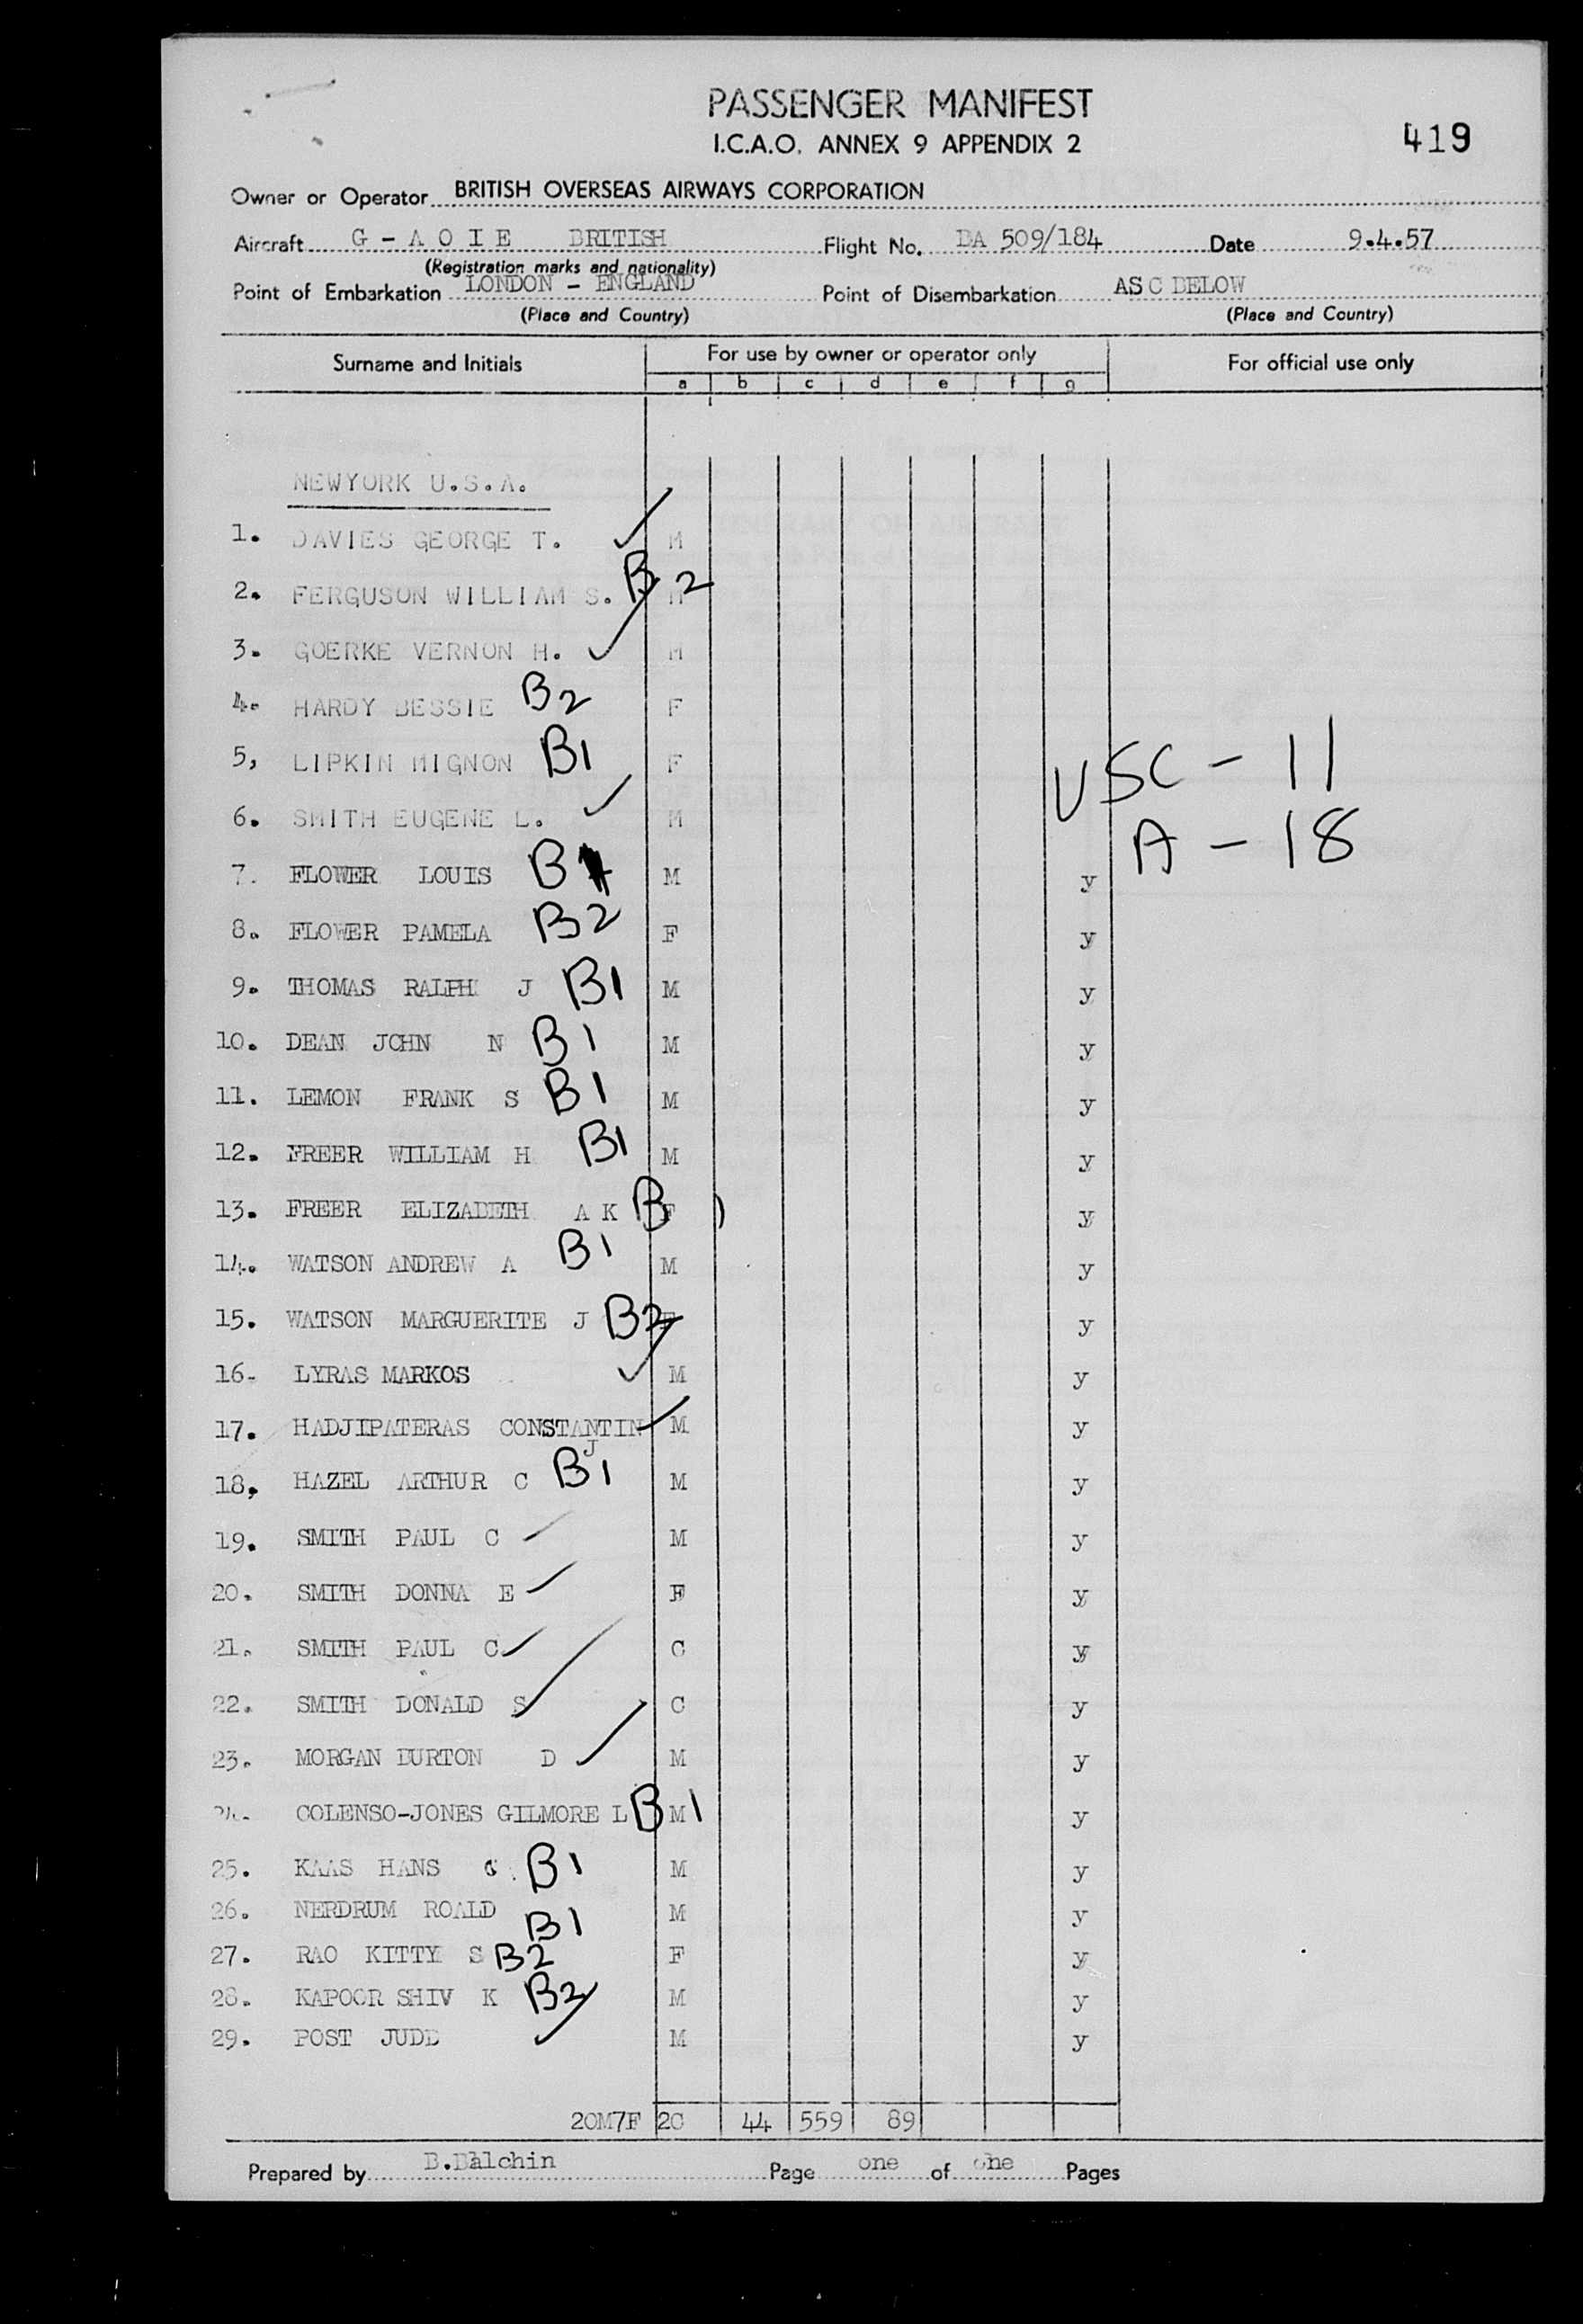 PASSENGER MANIFEST
I.C.A.O. ANNEX 9 APPENDIX 2
419
Owner or Operator BRITISH OVERSEAS AIRWAYS CORPORATION
Aircraft G - A O I E BRITISH Flight No. BA 509/184 Date 9.4.57
(Registration marks and nationality)
Point of Embarkation LONDON - ENGLAND Point of Disembarkation AS C BELOW
(Place and Country) (Place and Country)
Surname and Initials For use by owner or operator only For official use only
a b c d e f g
NEWYORK U.S.A.
1. DAVIES GEORGE T. ✓ M
2. FERGUSON WILLIAM S. B2 M
3. GOERKE VERNON H. ✓ M
4. HARDY BESSIE B2 F
5, LIPKIN MIGNON B1 F
USC - 11
6. SMITH EUGENE L. ✓ M
A - 18
7. FLOWER LOUIS B1 M y
8. FLOWER PAMELA B2 F y
9. THOMAS RALPH J B1 M y
10. DEAN JOHN N B1 M y
11. LEMON FRANK S B1 M y
12. FREER WILLIAM H B1 M y
13. FREER ELIZABETH A K B1 F y
14. WATSON ANDREW A B1 M y
15. WATSON MARGUERITE J B2 F y
16- LYRAS MARKOS ✓ M y
17. HADJIPATERAS CONSTANTIN ✓ M y
J
18, HAZEL ARTHUR C B1 M y
19. SMITH PAUL C ✓ M y
20. SMITH DONNA E ✓ F y
21. SMITH PAUL C ✓ C y
22. SMITH DONALD S ✓ C y
23. MORGAN BURTON D ✓ M y
24. COLENSO-JONES GILMORE L B1 M y
25. KAAS HANS G B1 M y
26. NERDRUM ROALD B1 M y
27. RAO KITTY S B2 F y
28. KAPOOR SHIV K B2 M y
29. POST JUDD ✓ M y
20M7F 2C 44 559 89
Prepared by B.Balchin Page one of one Pages